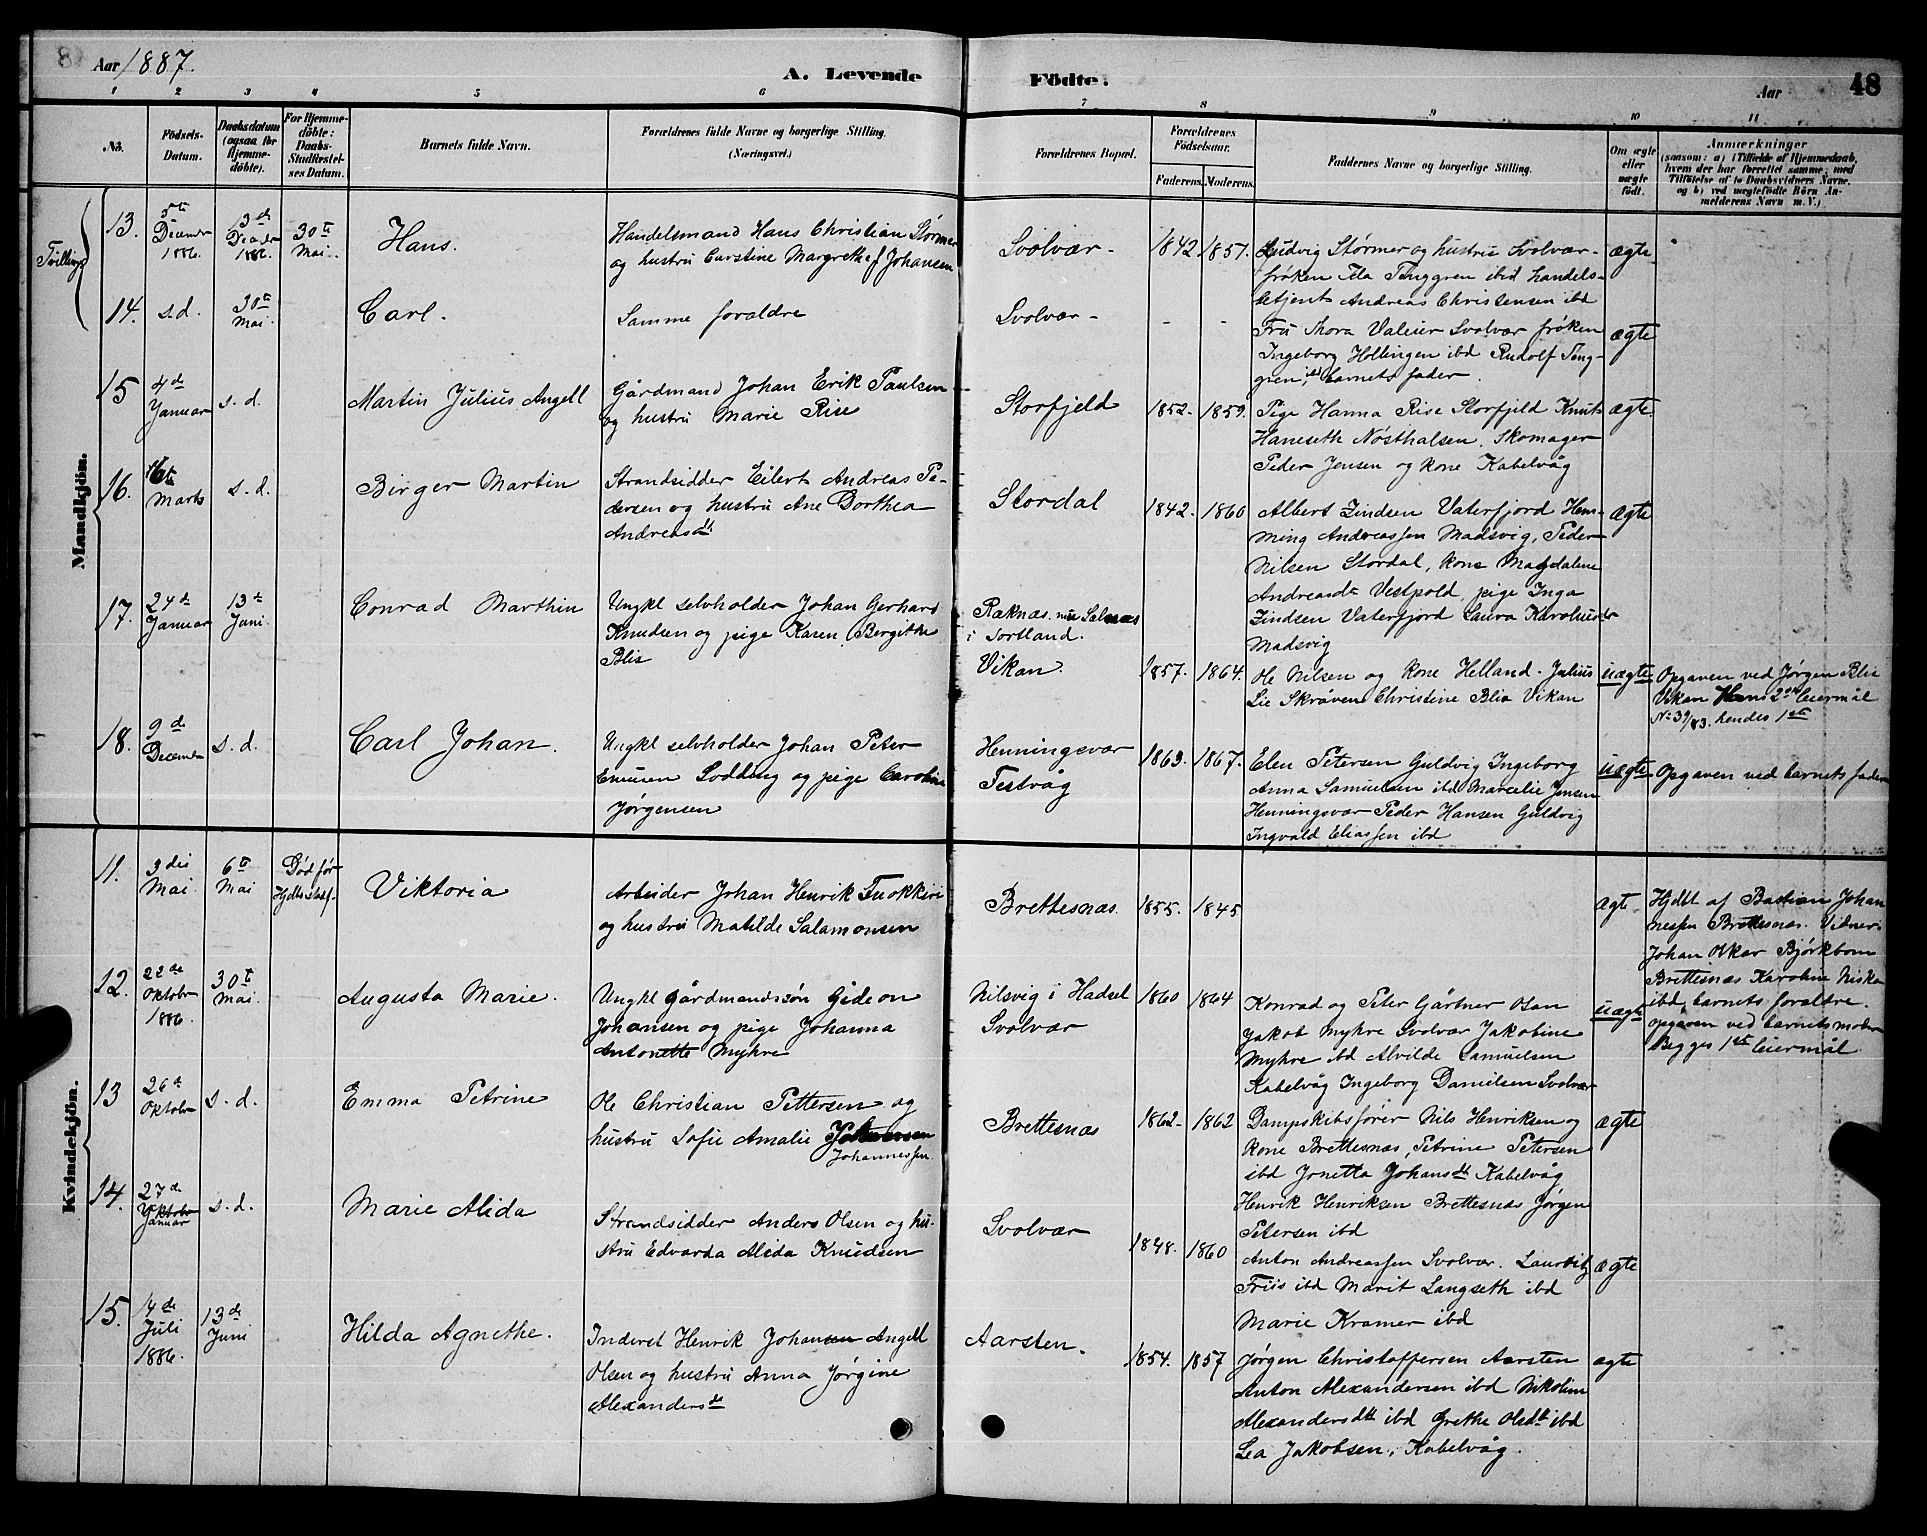 Aar 1887.
A. Levende
Födte.
Aar
48
1 2 3 4 5 6 7 8 9 10 11
No.
Födsels-Datum.
Daabsdatum (ogsaa for Hjemme-döbte).
For Hjemme-döbte: Daabs-Stadfæstel-ses Datum.
Barnets fulde Navn.
Forældrenes fulde Navne og borgerlige Stilling. (Næringsvei.)
Forældrenes Bopæl.
Forældrenes Födselsaar.
Faderens. Moderens.
Faddernes Navne og borgerlige Stilling.
Om ægte eller uægte födt.
Anmærkninger
(saasom: a) i Tilfælde af Hjemmedaab,
hvem der har forrettet samme, med
Tilföielse af to Daabsvidners Navne,
og b) ved uægtefödte Börn An-
melderens Navn m. V.)
Mandkjön.
Tvillinger
13. 5te December 1886. 13de December 1886. 30te Mai. Hans.
Handelsmand Hans Christian Størmer
og hustru Carstine Margrethe f Johansen
Svolvær- 1842 1857.
Ludvig Størmer og hustru Svolvær-
frøken Ida Tenggren ibid handels-
betjent Andreas Christensen ibd
ægte
14. s.d. 30te Mai. Carl.
Samme foraldre
Svolvær - - -
Fru Thora Valeur Svolvær frøken
Ingeborg Hollingen ibd Rudolf Teng-
gren, ibd barnets fader.
ægte
15 4de Januar s.d. Martin Julius Angell
Gårdmand Johan Erik Paulsen
og hustru Marie Rise
Storfjeld 1852. 1859.
Pige Hanna Rise Storfjeld Knut
Haneseth Nøsthalsen, Skomager
Peder Jensen og kone Kabelvåg
ægte
16. Marts s.d. Birger Martin
Strandsidder Eilert Andreas Pe-
dersen og hustru Ane Dorthea
Andreasdt
Stordal 1842. 1860
Albert Zindsen Vaterfjord Hem-
ming Andreassen Madsvig, Peder
Nilsen Stordal, kone Magdalene
Andreasdt Vestpold, pige Inga
Zindsen Vaterfjord Laura Karolinsdr
Madsvig
ægte
17. 24de Januar 13de Juni. Conrad Marthin
Ungkl selvholder Johan Gerhard
Knudsen og pige Karen Bergitte
Blis
Raknæs nu Salnæs
i Sortland.
Vikan. 1857. 1864.
Ole Nilsen og kone Helland. Julius
Lie Skråven Christine Blia Vikan
uægte
Opgaven ved Jørgen Blis
Vikan Hans 2det leiermål
No 39/83. hendes 1ste
18. 9de December s.d. Carl Johan.
Ungkl selvholder Johan Peter
Enusen Lodding og pige Caroline
Jørgensen
Henningsvær
Festvåg 1863. 1867.
Elen Petersen Guldvig Ingeborg
Anna Samuelsen ibd Marcelie Jensen
Henningsvær Peder Hansen Guldvig
Ingvald Eliassen ibd
uægte
Opgaven ved barnets fader
Kvindekjön.
11. 3die Mai. 6te Mai Død før Hjdbs stadf. Viktoria
Arbeider Johan Henrik Tuokkiri
og hustru Matilde Salamonsen
Brettesnæs. 1855. 1845
ægte
Hjdbt af Bastian Johan
nessen Brettesnæs. Vidner:
Johan Oskar Bjørkbom
Brettesnæs Karoline Niska
ibd, barnets foraldre.
12. 22de Oktober 1886. 30te Mai. Augusta Marie.
Ungkl gårdmandssøn Gideon
Johansen og pige Johanna
Antonette Myhre
Nilsvig i Hadsel
Svolvær 1860 1864
Konrad og Peter Gårtner Osan
Jakob Myhre Svolvær Jakobine
Myhre ibd Alvilde Samuelsen
Kabelvåg Ingeborg Danielsen Svolvær
uægte
opgaven ved barnets moder
Begges 1ste leiermål.
13 26de Oktober s.d. Emma Petrine
Ole Christian Pettersen og
hustru Sofie Amalie Johansen
Johannessen
Brettesnæs 1862- 1862
Dampskibsfører Nils Henriksen og
kone Brettesnæs, Petrine Petersen
ibd Jonetta Johansdt Kabelvåg
Henrik Henriksen Brettesnæs Jørgen
Petersen ibd
ægte
14. 27de Oktober Januar s.d. Marie Alida
Strandsidder Anders Olsen og hu-
stru Edvarda Alida Knudsen
Svolvær 1848. 1860
Anton Andreassen Svolvær. Lauritz
Friis ibd Marit Langseth ibd
Marie Kramer ibd
ægte
15. 14de Juli 1886. 13de Juni Hilda Agnethe.
Inderst Henrik Johansen Angell
Olsen og hustru Anna Jørgine
Alexandersdt
Aarsten. 1854. 1857
Jørgen Christoffersen Aarsten
Anton Alexandersen ibd Nikoline
Alexandersdt ibd Grethe Olsdt ibd
Lea Jakobsen, Kabelvåg.
ægte